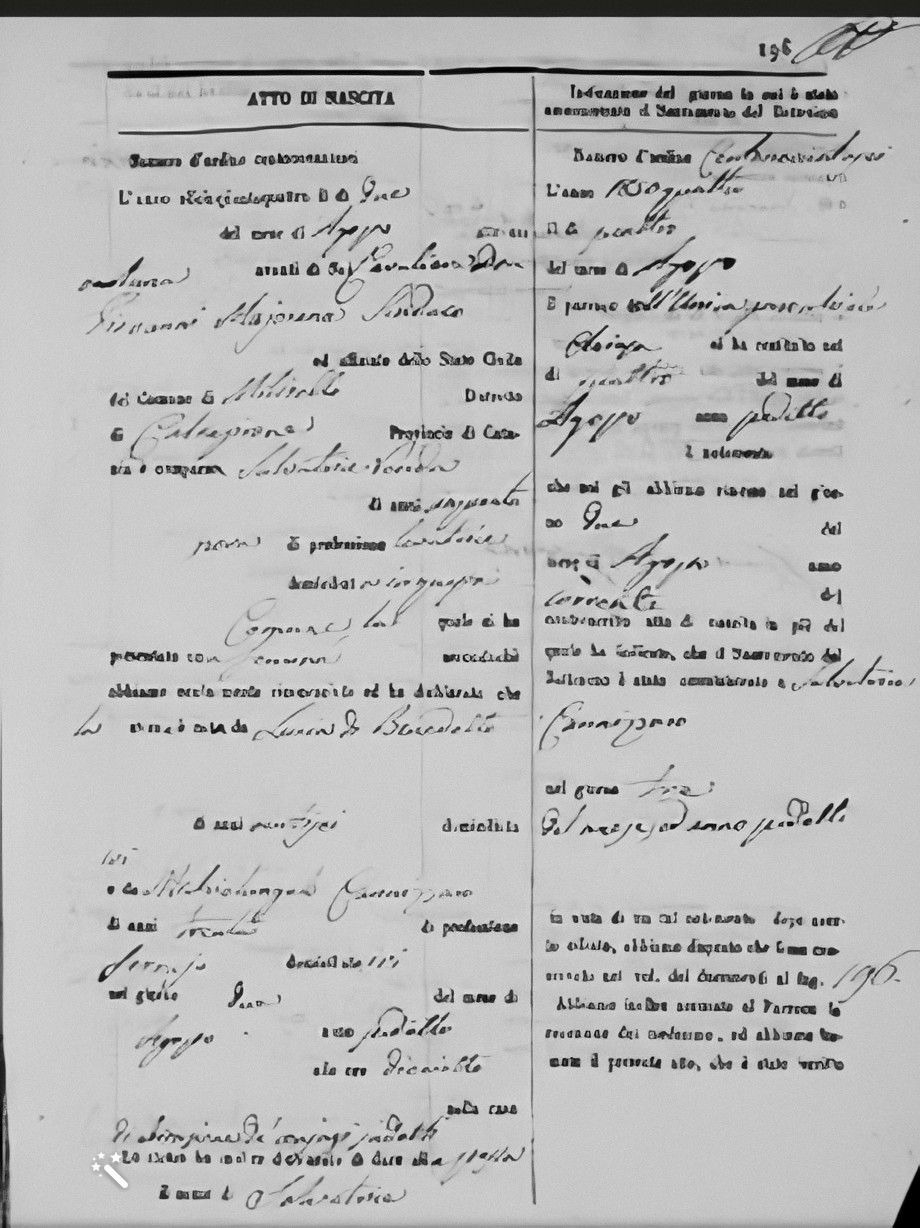 196
ATTO DI NASCITA
Numero d'ordine centonovantasei
L'anno milleottocentocinquantaquattro il dì Due
del mese di Agosto alle ore
avanti di Noi Cavaliere Don
Giovanni Majorana Sindaco
ed uffiziale dello Stato Civile
del Comune di Militello Distretto
di Caltagirone Provincia di Cata-
nia è comparsa Salvatrice
di anni cinquanta
di professione levatrice
domiciliata in questa
Comune la quale ci ha
presentato una femina secondochè
abbiamo ocularmente riconosciuto ed ha dichiarato che
la stessa è nata da Lucia di Benedetto
di anni ventisei domiciliata
ivi
e da Michelangelo Cannizzaro
di anni trenta di professione
domiciliato ivi
nel giorno Due del mese di
Agosto anno suddetto
alle ore diciotto
nella casa
di abitazione de' conjugi suddetti
La stessa ha inoltre dichiarato di dare alla stessa
il nome di Salvatrice
Indicazione del giorno in cui è stato
amministrato il Sacramento del Battesimo
Numero d'ordine Centonovantasei
L'anno 1850quattro
Il dì quattro
del mese di Agosto
Il parroco dell'Unica parrocchiale
Chiesa ci ha restituito nel
dì quattro del mese di
Agosto anno suddetto
il notamento
che noi gli abbiamo rimesso nel gior-
no Due del
mese di Agosto anno
corrente del
controscritto atto di nascita in piè del
quale ha indicato, che il Sacramento del
Battesimo è stato amministrato a Salvatrice
Cannizzaro
nel giorno tre
del mese, ed anno suddetti
In vista di un tal notamento dopo aver-
lo cifrato, abbiamo disposto che fosse con-
servato nel vol. dei documenti al fog. 196.
Abbiamo inoltre accusato al Parroco la
ricezione del medesimo, ed abbiamo for-
mato il presente atto, che è stato iscritto